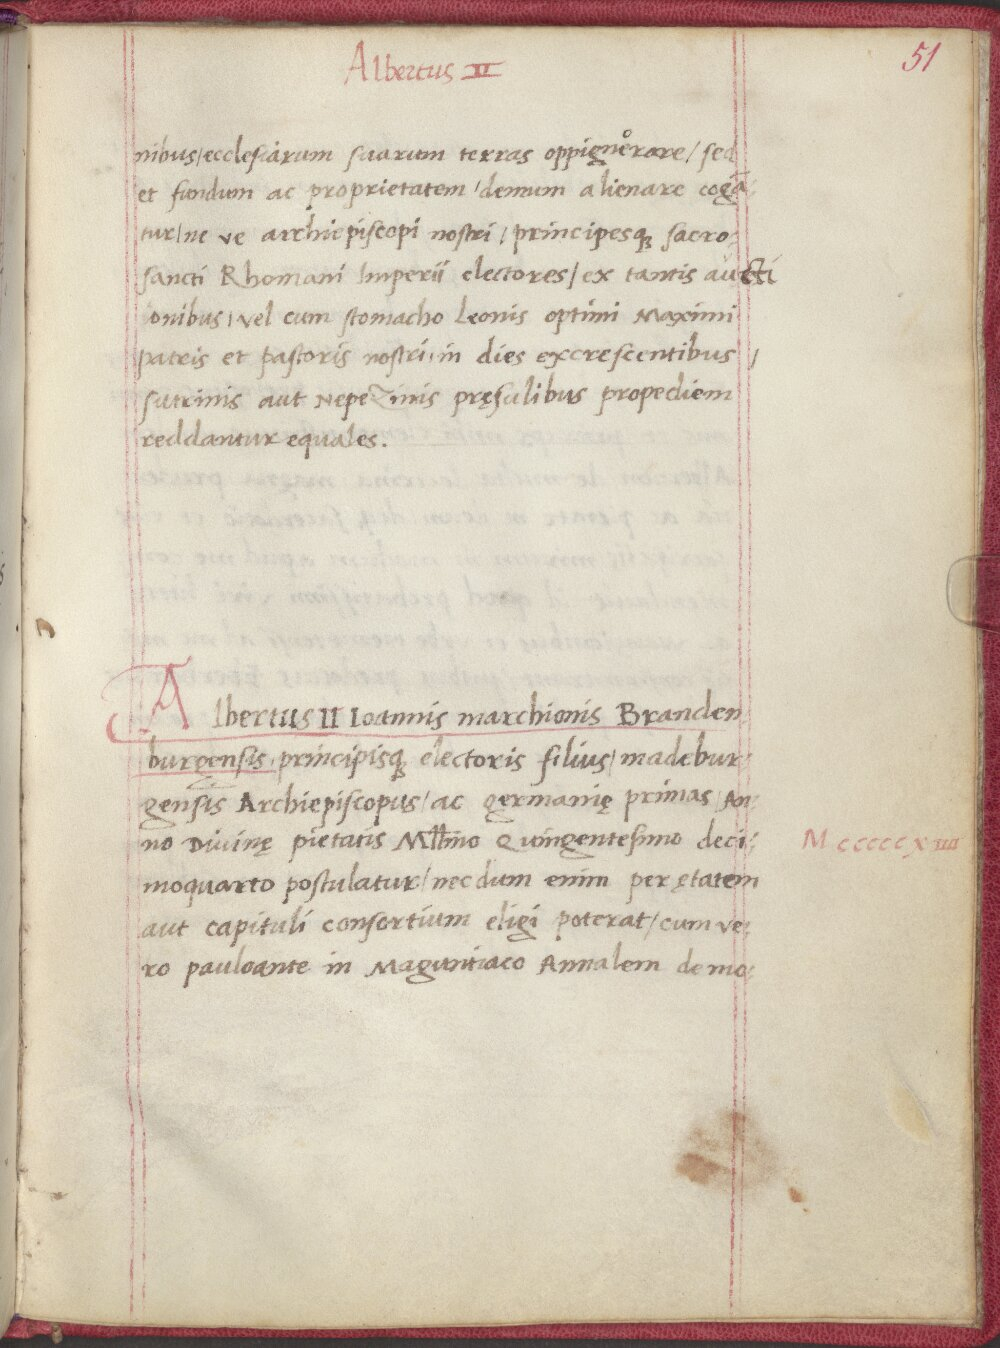 Albertus II
51
nibus/ecclesiarum suarum terras oppignorare/sed
et fundum ac proprietatem/demum alienare cogā:
tur/ne ve archiepiscopi nostri/principesqꝫ sacro:
sancti Rhomani Imperii electores/ex tantis aucti
onibus/vel cum stomacho Leonis optimi Maximi
patris et pastoris nostri/in dies excrescentibus/
sutrinis aut Nepezinis pręsulibus propediem
reddantur equales.
Albertus II Ioannis marchionis Branden
burgensis/principisqꝫ electoris filius/madebur:
gensis Archiepiscopus/ac germanię primas/An:
no Divinę pietatis Mllīmo Quingentesimo deci:
moquarto postulatur/necdum enim per ętatem
aut capituli consortium eligi poterat/cum ve:
ro pauloante in Maguntiaco Annalem demo:
M ccccc x iiii